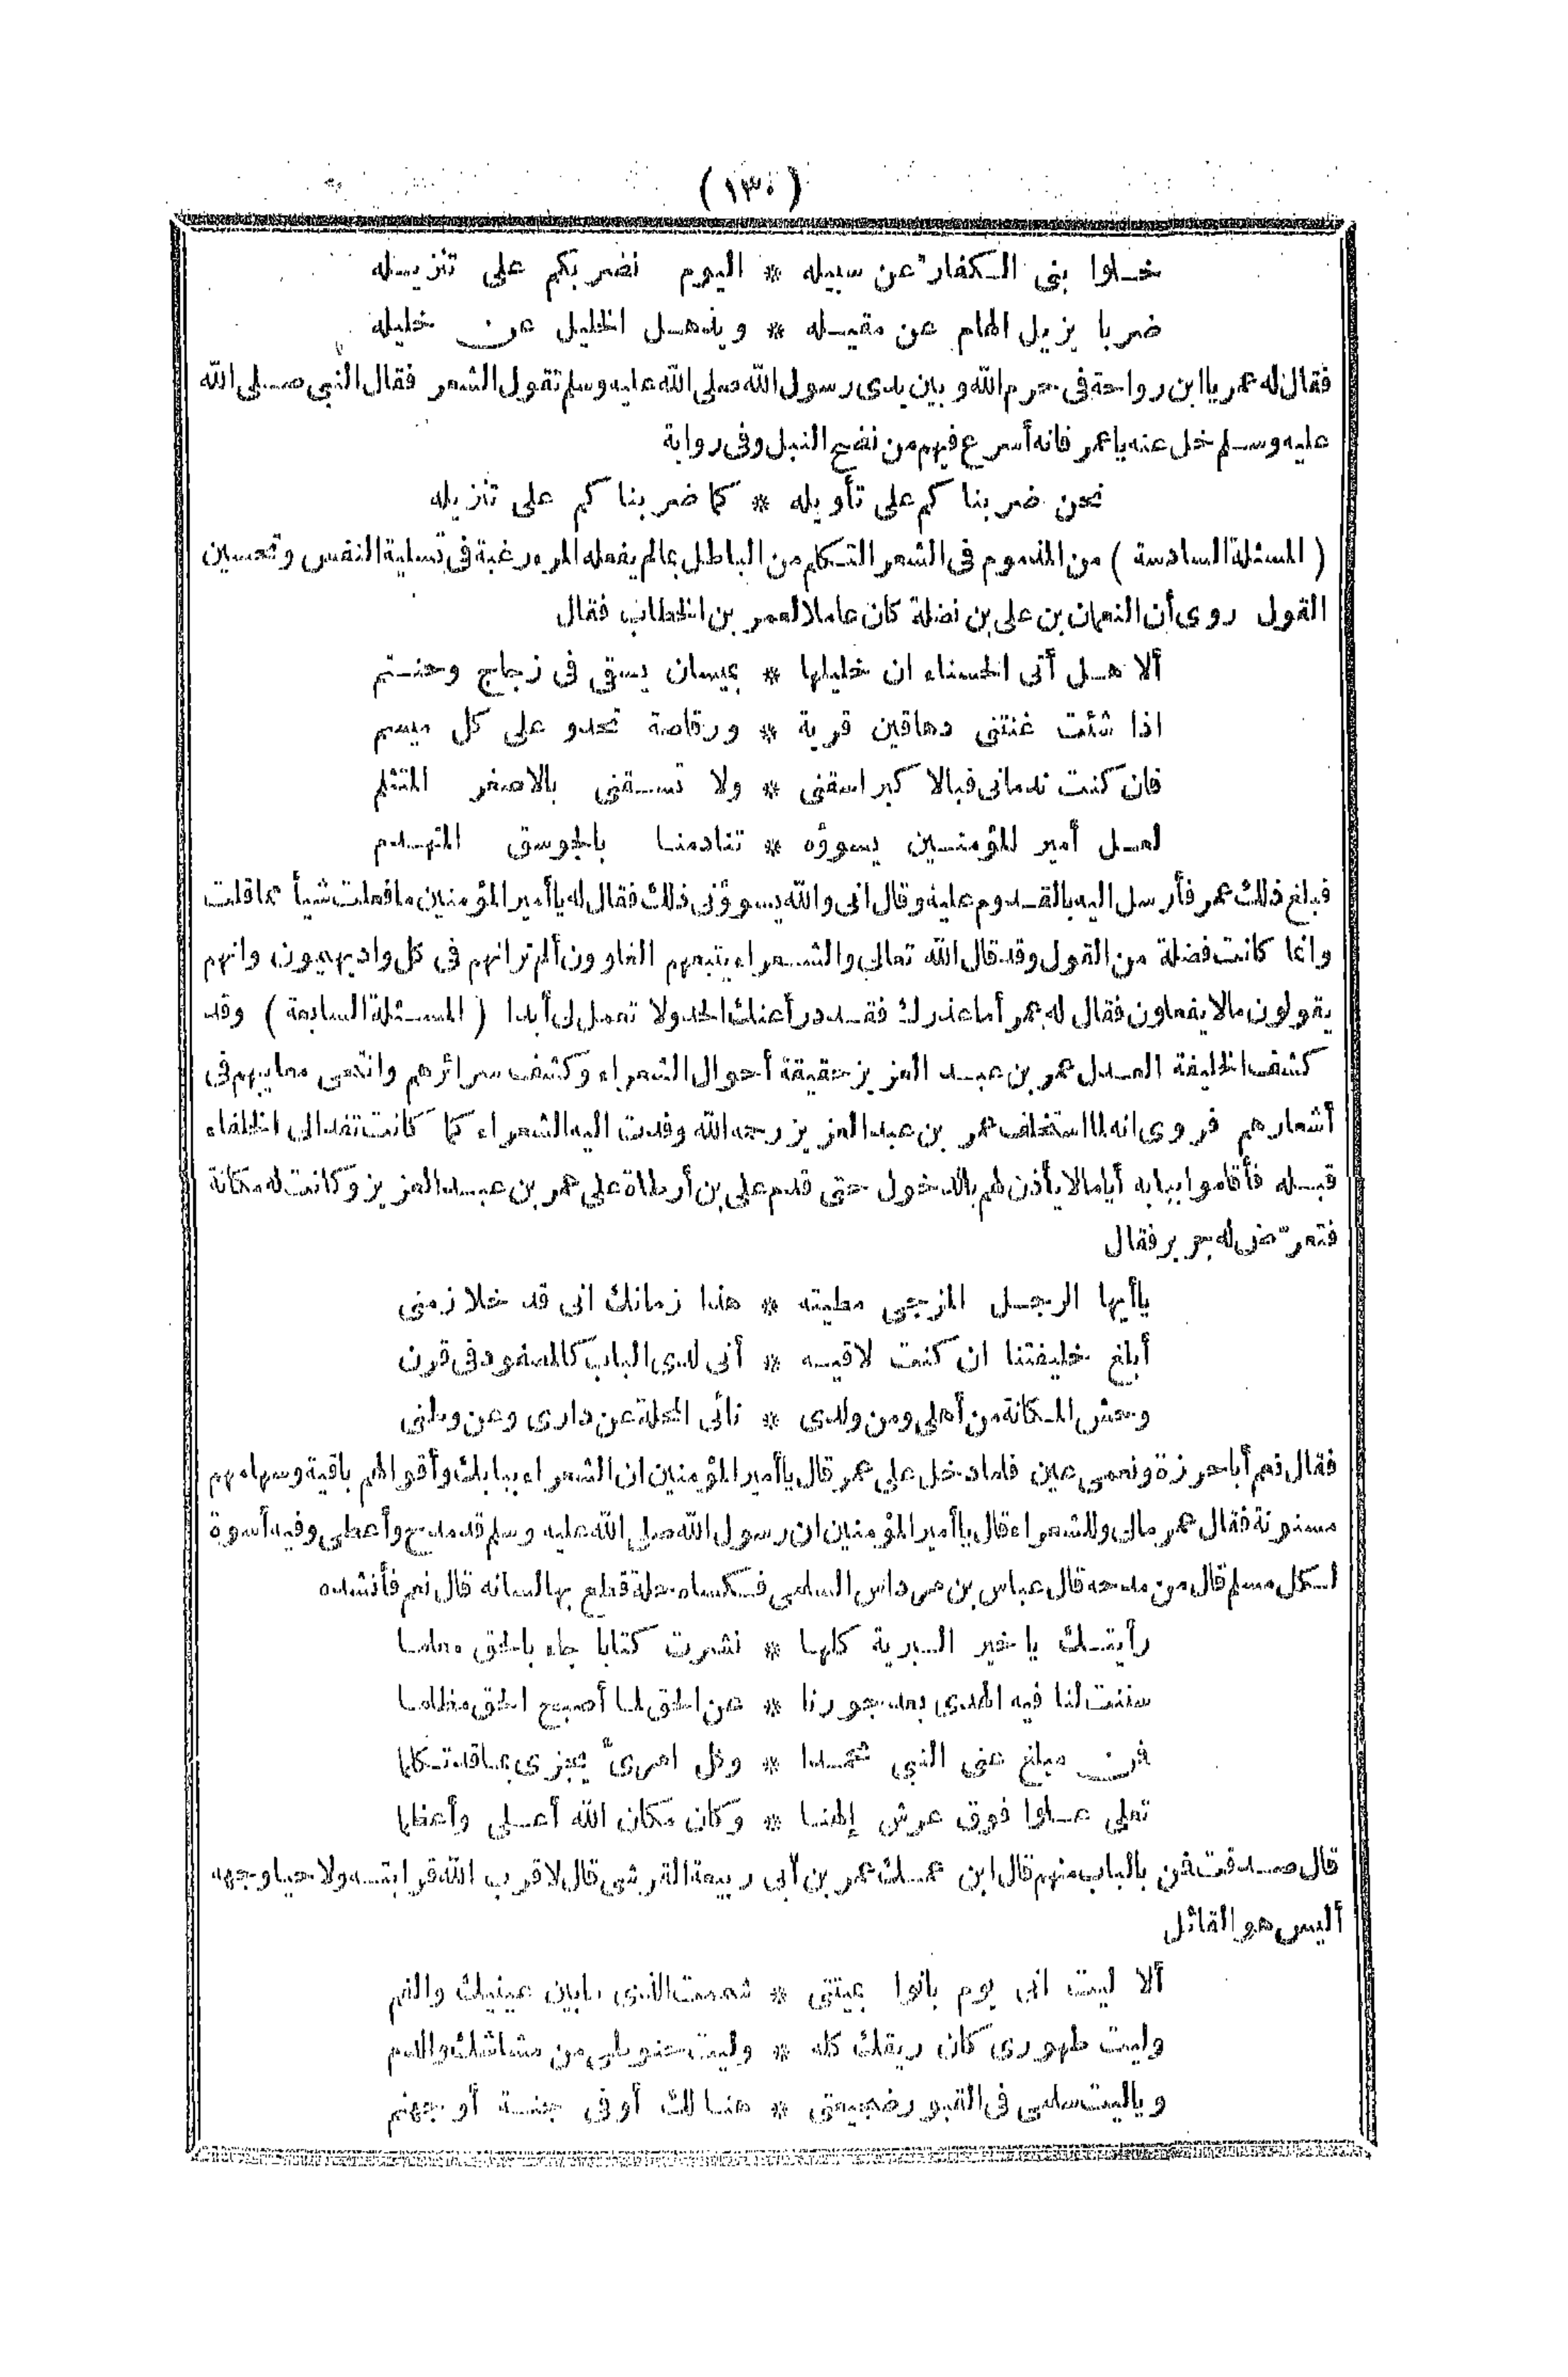 (١٣٠)
خلوا بنى الكفار عن سبيله * اليوم نضربكم على تنزيله
ضربا يزيل الهام عن مقيله * ويذهل الخليل عن خليله
فقال له عمر يا ابن رواحة فى حرم الله وبين يدى رسول الله صلى الله عليه وسلم تقول الشعر فقال النبى صلى الله
عليه وسلم خل عنه يا عمر فانه أسرع فيهم من نضح النبل وفى رواية
نحن ضربنا كم على تأويله * كما ضربنا كم على تنزيله
(المسئلة السادسة) من المذموم فى الشعر التكلم من الباطل بمالم يفعله المرء رغبة فى تسلية النفس وتحسين
القول روى أن النعمان بن على بن نضلة كان عاملا لعمر بن الخطاب فقال
ألا هل أتى الحسناء ان خليلها * بميسان يسقى فى زجاج وحنتم
اذا شئت غنتنى دهاقين قرية * ورقاصة تحدو على كل ميسم
فان كنت ندمانى فبالا كبر اسقنى * ولا تسقنى بالاصغر المتثلم
لعل أمير المؤمنين يسوؤه * تنادمنا بالجوسق المتهدم
فبلغ ذلك عمر فأرسل اليه بالقدوم عليه وقال انى والله يسوؤنى ذلك فقال له يا أمير المؤمنين ما فعلت شيأ مما قلت
وانما كانت فضلة من القول وقد قال الله تعالى والشعراء يتبعهم الغاوون ألم تر انهم فى كل واد يهيمون وانهم
يقولون مالا يفعلون فقال له عمر أما عذرك فقد درأ عنك الحد ولا تعمل لى أبدا (المسئلة السابعة) وقد
كشف الخليفة العدل عمر بن عبد العزيز حقيقة أحوال الشعراء وكشف سرائرهم وانتحى معايبهم فى
أشعارهم فروى انه لما استخلف عمر بن عبد العزيز رحمه الله وفدت اليه الشعراء كما كانت تفد الى الخلفاء
قبله فأقاموا ببابه أياما لا يأذن لهم بالدخول حتى قدم على بن أرطاة على عمر بن عبد العزيز وكانت له مكانة
فتعرّض له جرير فقال
يا أيها الرجل المزجى مطيته * هذا زمانك انى قد خلا زمنى
أبلغ خليفتنا ان كنت لاقيه * أنى لدى الباب كالمصفود فى قرن
وحش المكانة من أهلى ومن ولدى * نائى المحلة عن دارى وعن وطنى
فقال نعم أبا حرزة ونعمى عين فلما دخل على عمر قال يا أمير المؤمنين ان الشعراء ببابك وأقوالهم باقية وسهامهم
مسنونة فقال عمر مالى وللشعراء قال يا أمير المؤمنين ان رسول الله صلى الله عليه وسلم قد مدح وأعطى وفيه أسوة
لكل مسلم قال من مدحه قال عباس بن مرداس السلمى فكساه حلة قطع بها لسانه قال نعم فأنشده
رأيتك يا خير البرية كلها * نشرت كتابا جاء بالحق معلما
سننت لنا فيه الهدى بعد جورنا * عن الحق لما أصبح الحق مظلما
فمن مبلغ عنى النبى محمدا * وكل امرئ يجزى بما قد تكلما
تعلى علوا فوق عرش إلهنا * وكان مكان الله أعلى وأعظما
قال صدقت فمن بالباب منهم قال ابن عمك عمر بن أبى ربيعة القرشى قال لا قرب الله قرابته ولا حيا وجهه
أليس هو القائل
ألا ليت انى يوم بانوا بميتتى * شممت الذى ما بين عينيك والفم
وليت طهورى كان ريقك كله * وليت حنوطى من مشاشك والدم
وياليت سلمى فى القبور ضجيعتى * هنا لك أو فى جنة أو جهنم